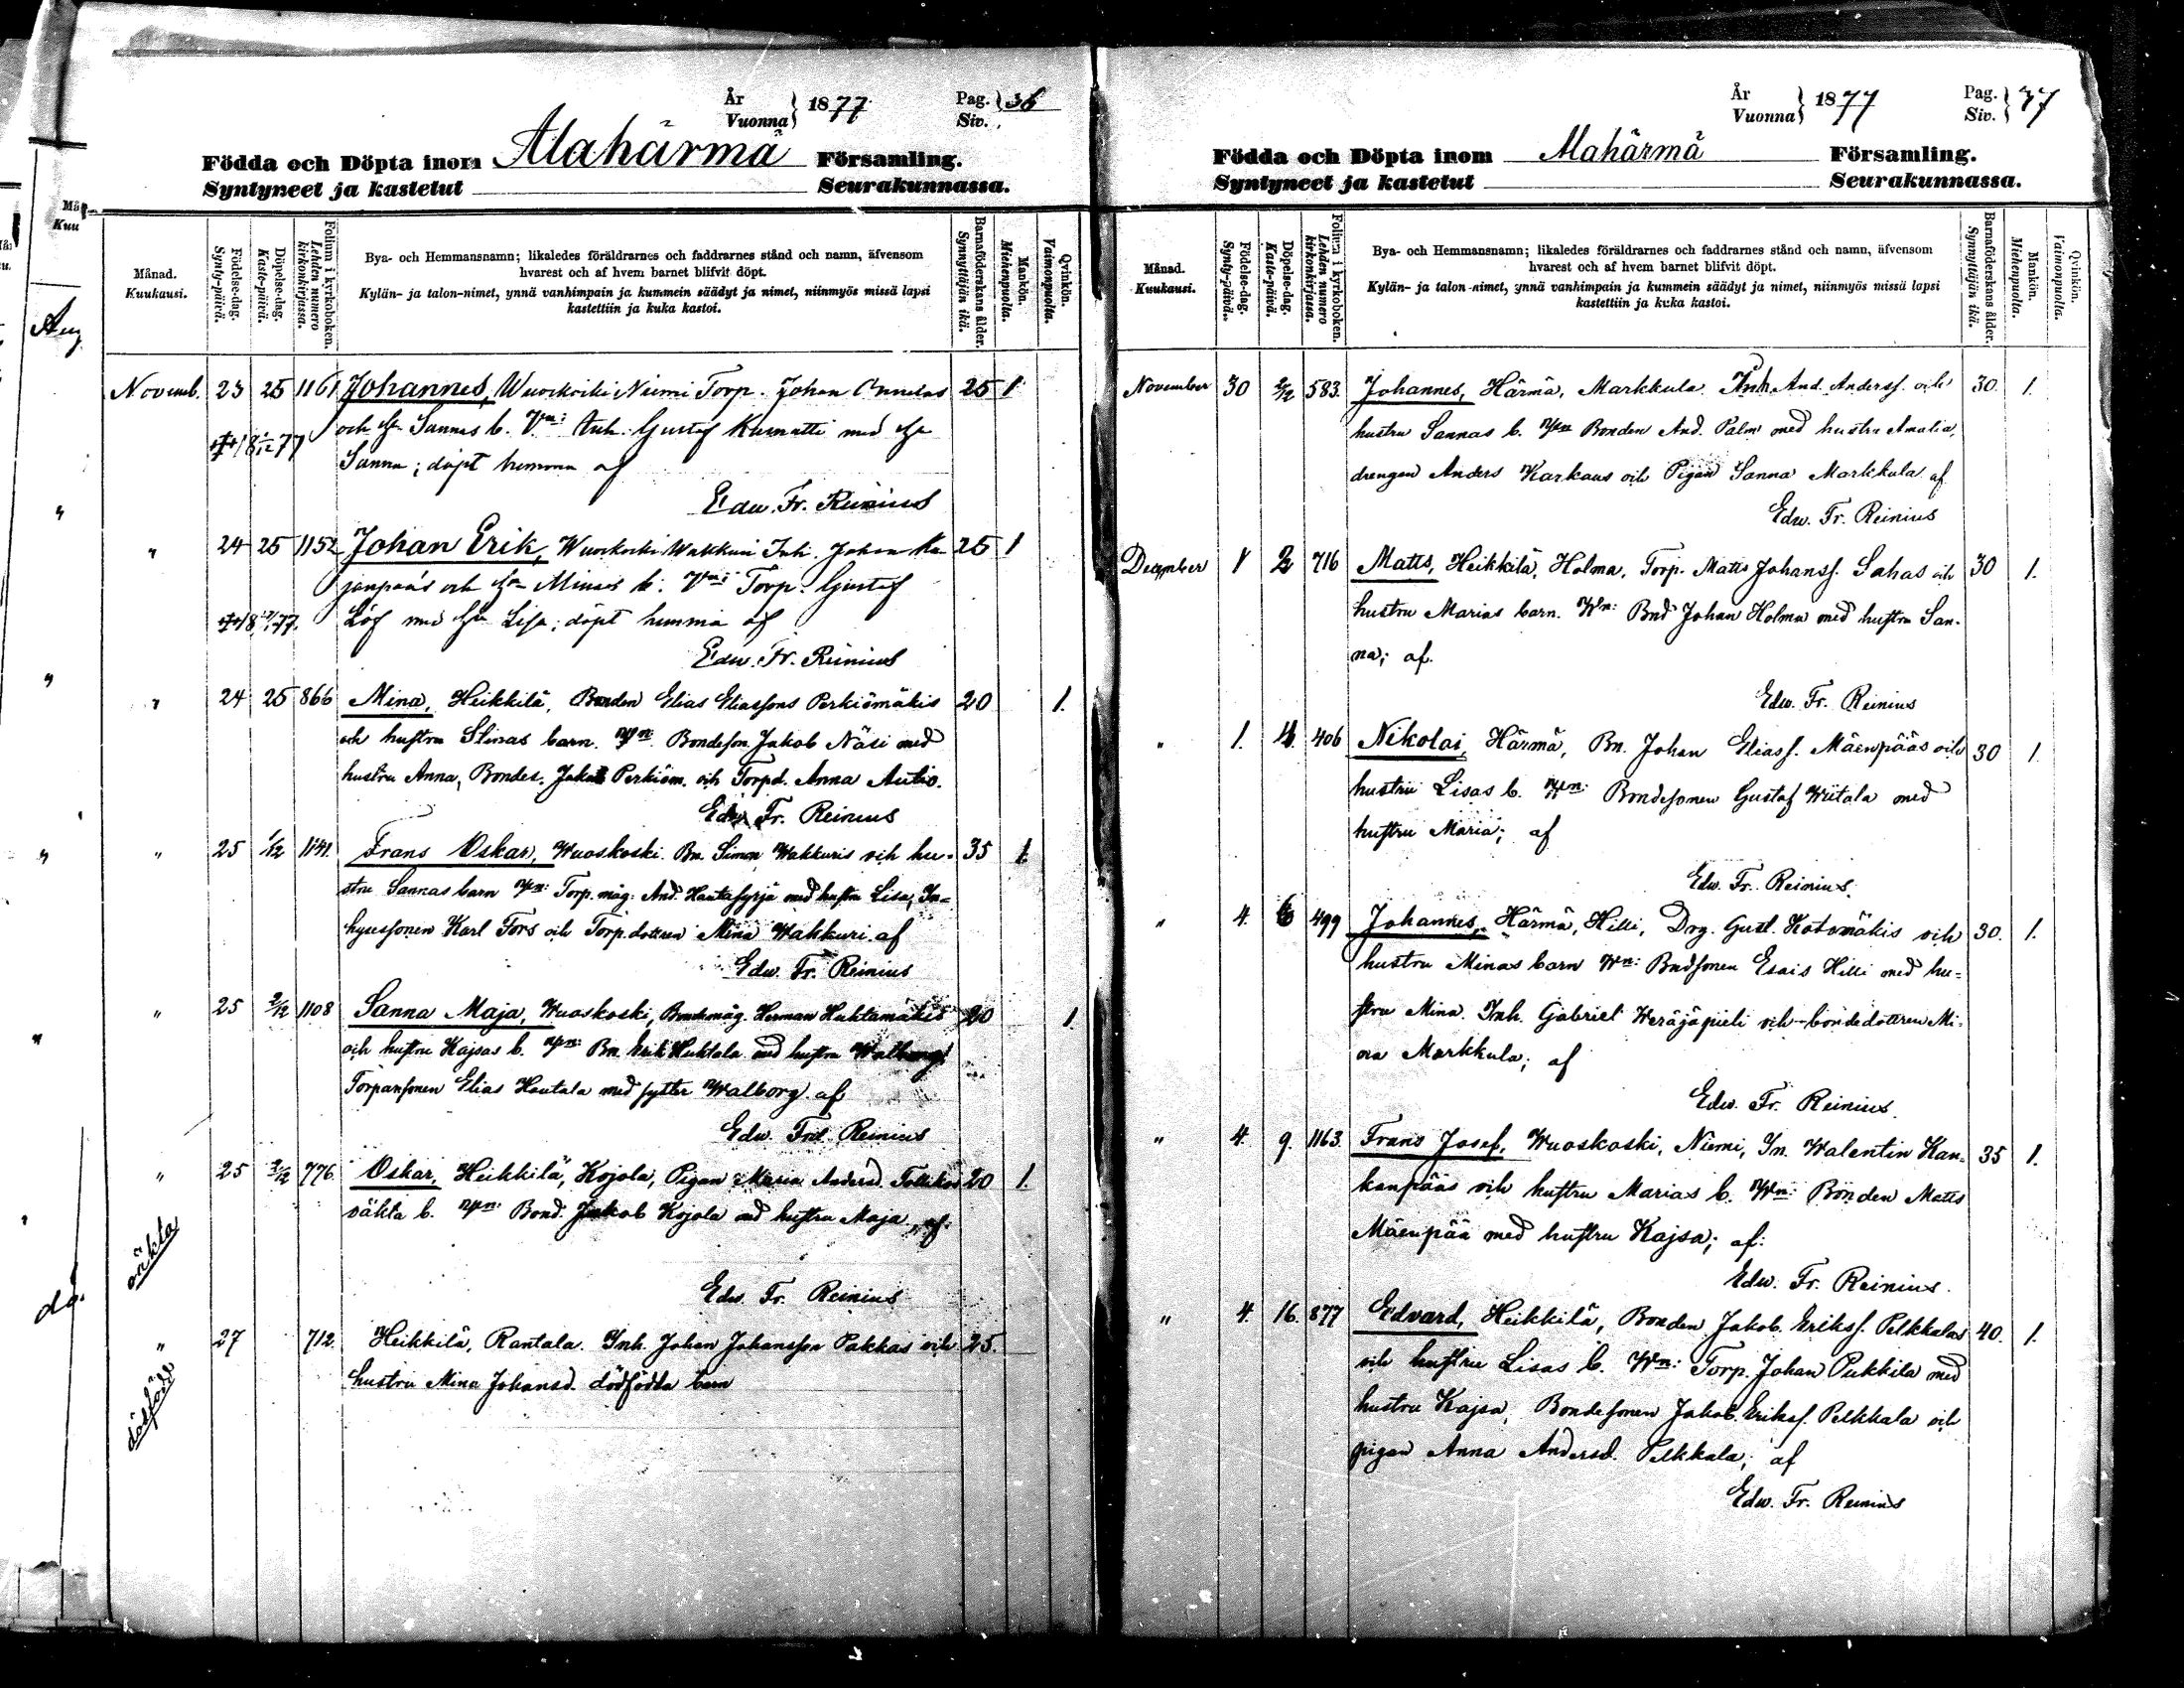 År
Vuonna } 1877
Pag.
Siv. } 36
Födda och Döpta inom Alahärmä Församling.
Syntyneet ja kastetut Seurakunnassa.
Månad.
Kuukausi.
Födelse-dag.
Synty-päivä.
Döpelse-dag.
Kaste-päivä.
Folium i kyrkoboken.
Lehden numero
kirkonkirjassa.
Bya- och Hemmansnamn; likaledes föräldrarnes och faddrarnes stånd och namn, äfvensom
hvarest och af hvem barnet blifvit döpt.
Kylän- ja talon-nimet, ynnä vanhimpain ja kummein säädyt ja nimet, niinmyös missä lapsi
kastettiin ja kuka kastoi.
Barnaföderskans ålder.
Synnyttäjän ikä.
Mankön.
Miehenpuolta.
Qvinkön.
Vaimonpuolta.
Novemb. 23 25 1161 Johannes, Wuoskoski Niemi Torp. Johan 25 1
och Sannas b. Gustaf med
Sanna; döpt hemma af
Edw. Fr. Reinius
" 24 25 1152 Johan Erik, Wuoskoski Wakkuri Inh. Johan Ka- 25 1
janpääs och Minas b. Torp. Gustaf
Löf med Lisa; döpt hemma af
Edw. Fr. Reinius
" 24 25 866 Mina, Heikkilä, Bonden Elias Eliassons Perkiömäkis 20 1.
och hustru Stinas barn. Wn: Bondeson Jakob Näsi med
hustru Anna, Bondes. Jakob Perkiöm. och Torpd. Anna Autio.
Edw. Fr. Reinius
" 25 1/12 1141. Frans Oskar, Wuoskoski. Bn. Simon Wakkuris och hu- 35 1.
stru Sannas barn Wn: Torp. måg. And. Hautasyrjä med hustru Lisa, In-
hysessonen Karl Fors och Torp. dottren Mina Wakkuri. af
Edw. Fr. Reinius
" 25 2/12 1108 Sanna Maja, Wuoskoski, Bondemåg. Herman Huhtamäkis 20 1
och hustru Kajsas b. Wn: Bn. Erik Huhtala med hustru Walborg,
Torparsonen Elias Hautala med syster Walborg. af
Edw. Frd. Reinius
" 25 2/12 776. Oskar, Heikkilä, Kojola, Pigan Maria Andersd. 20 1.
oäkta b. Wn: Bond. Jakob Kojola med hustru Maja, af:
oäkta
Edw. Fr. Reinius
" 27 712. Heikkilä, Rantala. Inh. Johan Johansson Pakkas och 25.
hustru Mina Johansd. dödfödda barn
dödfödd
År
Vuonna } 1877
Pag.
Siv. } 37
Födda och Döpta inom Alahärmä Församling.
Syntyneet ja kastetut Seurakunnassa.
Månad.
Kuukausi.
Födelse-dag.
Synty-päivä.
Döpelse-dag.
Kaste-päivä.
Folium i kyrkoboken.
Lehden numero
kirkonkirjassa.
Bya- och Hemmansnamn; likaledes föräldrarnes och faddrarnes stånd och namn, äfvensom
hvarest och af hvem barnet blifvit döpt.
Kylän- ja talon-nimet, ynnä vanhimpain ja kummein säädyt ja nimet, niinmyös missä lapsi
kastettiin ja kuka kastoi.
Barnaföderskans ålder.
Synnyttäjän ikä.
Mankön.
Miehenpuolta.
Qvinkön.
Vaimonpuolta.
November 30 2/12 583. Johannes, Härmä, Markkula. Inh. And. Anderss. och 30. 1.
hustru Sannas b. Wn Bonden And. Palm med hustru Amalia,
drengen Anders Karkaus och Pigan Sanna Markkula af
Edw. Fr. Reinius
December 1 2 716 Matts, Heikkilä, Holma, Torp. Matts Johanss. Sahas och 30 1.
hustru Marias barn. Wn: Bnd Johan Holma med hustru San-
na; af.
Edw. Fr. Reinius
" 1. 4. 406 Nikolai, Härmä, Bn. Johan Eliass. Mäenpääs och 30 1.
hustru Lisas b. Wn: Bondesonen Gustaf Wiitala med
hustru Maria; af
Edw. Fr. Reinius.
" 4. 6 499 Johannes, Härmä, Hilli, Drg. Gust. Kotomäkis och 30. 1.
hustru Minas barn Wn: Bndsonen Esais Hilli med hu-
stru Mina. Inh. Gabriel Weräjäpieli och bondedottren Mi-
na Markkula; af
Edw. Fr. Reinius.
" 4. 9. 1163. Frans Josef, Wuoskoski, Niemi, In. Walentin Kan- 35 1.
kanpääs och hustru Marias b. Wn: Bonden Matts
Mäenpää med hustru Kajsa; af:
Edw. Fr. Reinius.
" 4. 16. 877 Edvard, Heikkilä, Bonden Jakob. Erikss. Pelkkalas 40. 1.
och hustru Lisas b. Wn: Torp. Johan Pukkila med
hustru Kajsa, Bondesonen Jakob. Erikss. Pelkkala och
pigan Anna Andersd. Pelkkala; af
Edw. Fr. Reinius